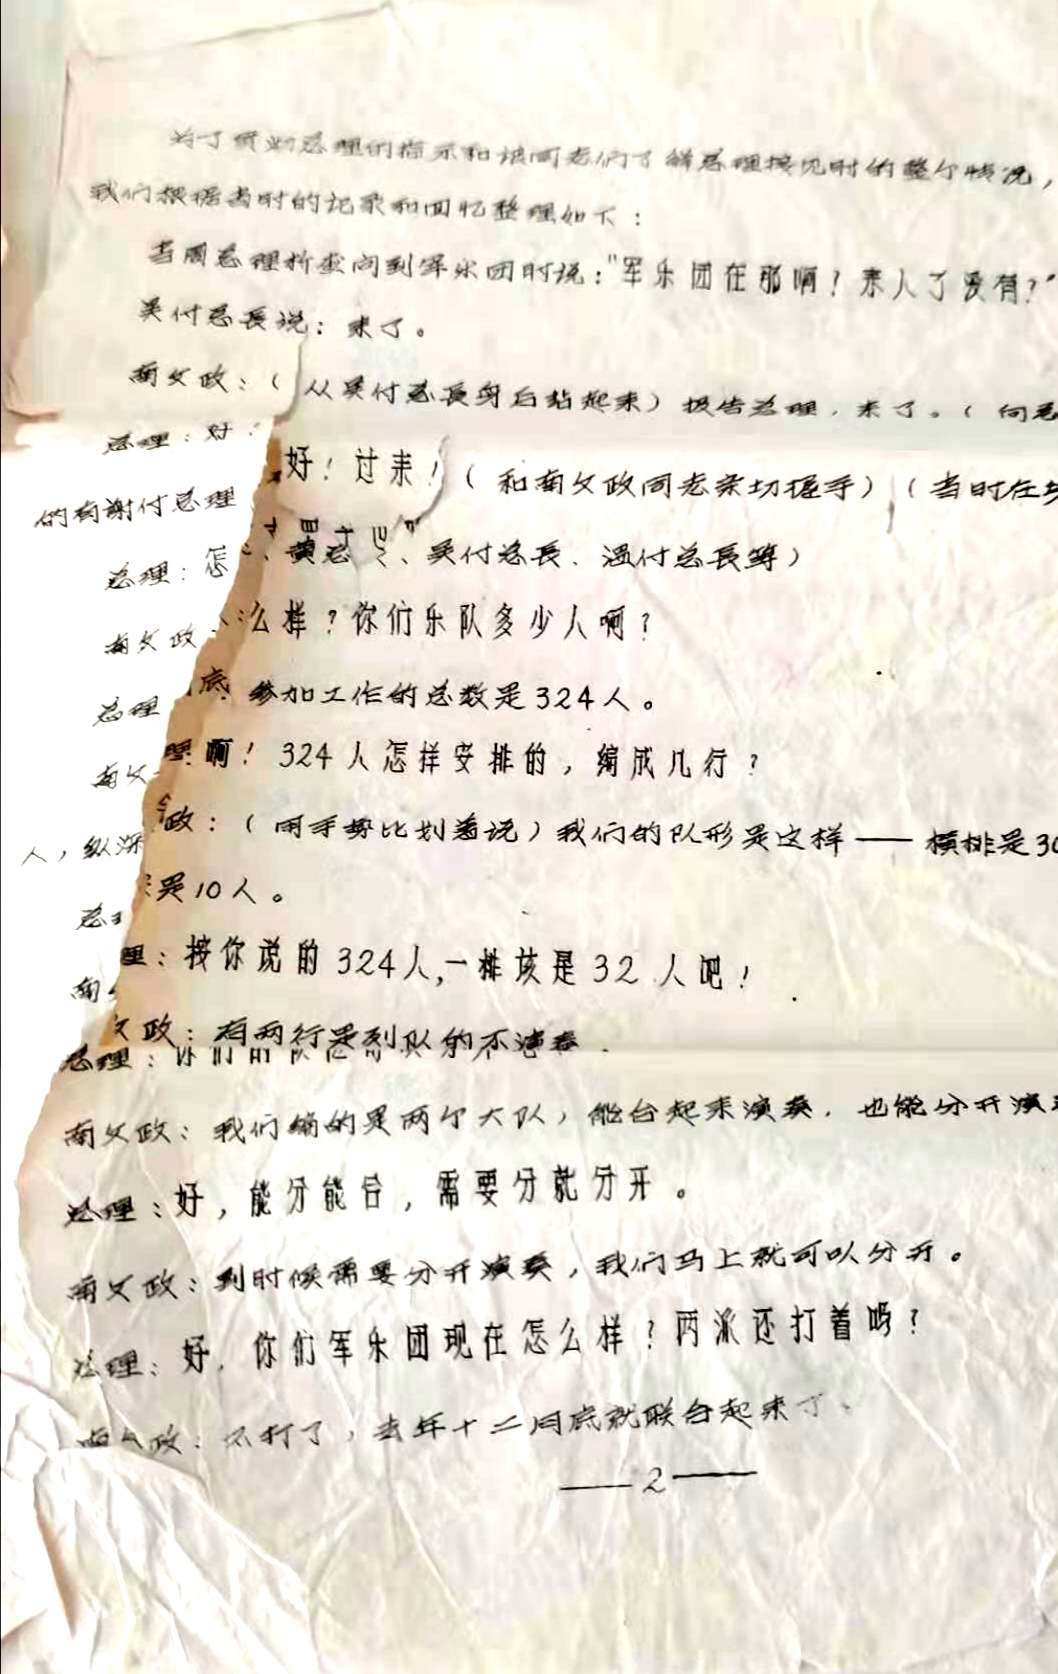 为了贯彻总理的指示和让同志们了解总理接见时的整个情况，
我们根据当时的记录和回忆整理如下：
当周总理 问到军乐团时说："军乐团在那啊！来人了没有？"
吴付总長说：来了。
南文政：（从吴付总長身后站起来）报告总理，来了。（向
总理：好 好！过来！（和南文政同志亲切握手）（当时在
的有谢付总理、黄总 、吴付总長、温付总長等）
总理：怎么样？你们乐队多少人啊？
南文政 参加工作的总数是324人。
总理 啊！324人怎样安排的，编成几行？
南文政：（用手势比划着说）我们的队形是这样——横排是30
人，纵深是10人。
总理：按你说的324人，一排该是32人吧！
南文政：有两行是列队的不演奏．
总理：你们的队
南文政：我们编的是两个大队，能合起来演奏．也能分开演
总理：好，能分能合，需要分就分开。
南文政：到时候需要分开演奏，我们马上就可以分开。
总理：好，你们军乐团现在怎么样？两派还打着吗？
南文政：不打了，去年十二月底就联合起来了、
——2——